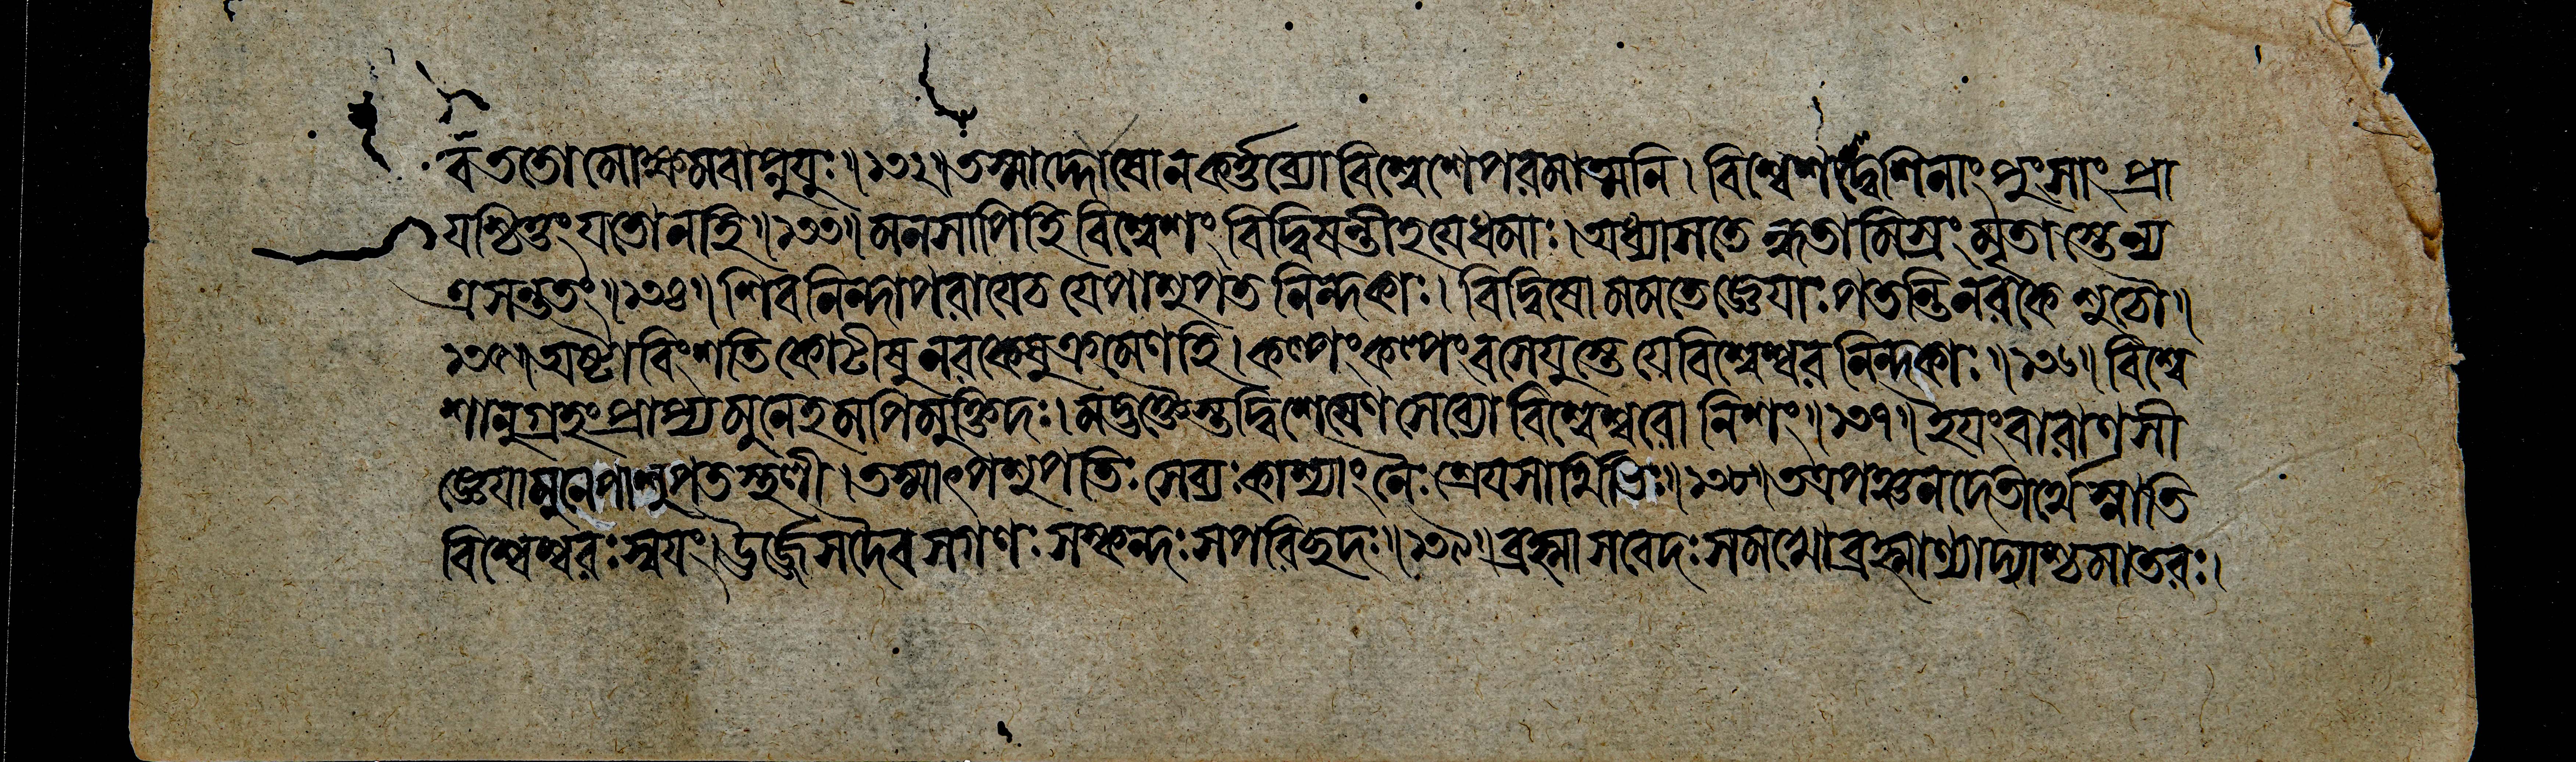 ৰ ততো মোক্ষমবাপ্নুযুঃ॥১৩২॥তস্মাদ্দোষো ন কর্ত্তব্যো বিশ্বেশে পৰমাত্মনি। বিশ্বেশদ্বেশিনাং পুংসাং প্রা
যশ্চিত্তং যতো নহি॥১৩৩॥মনসাপি হি বিশ্বেশং বিদ্বিষন্তীহ যেধমাঃ।অধ্যাসতেন্ধতামিস্রং মৃতাস্তেন্য
ত্রসন্ততং॥১৩৪॥শিবনিন্দাপৰা যেচ যে পাশুপতনিন্দকাঃ। বিদ্বিষো মম তে জ্ঞেযাঃ পতন্তি নৰকেশুচৌ॥
১৩৫॥অষ্টাবিংশতিকোটীষু নৰকেষু ক্রমেণ হি। কল্পং কল্পং বসেযুস্তে যে বিশ্বেশ্বৰনিন্দকাঃ॥১৩৬॥ বিশ্বে
শানুগ্রহং প্রাপ্য মুনেহমপি মুক্তিদঃ।মদ্ভক্তৈস্তদ্বিশেষেণ সেব্যো বিশ্বেশ্বৰোনিশং॥১৩৭॥ইযং বাৰাণসী
জ্ঞেযা মুনে পাশুপতস্থলী।তস্মাৎ পশুপতিঃ সেব্যঃ কাশ্যাং নৈঃশ্রেযসার্থিভিঃ॥১৩৮॥তত্র পঞ্চনদে তীর্থে স্নাতি
বিশ্বেশ্বৰঃ স্বযং।ঊর্জ্জে সদৈব সগণঃ সস্কন্দঃ সপৰিছদঃ॥১৩৯॥ব্রহ্মা সবেদঃ সমখো ব্রহ্মাণ্যাদ্যাশ্চ মাতৰঃ।